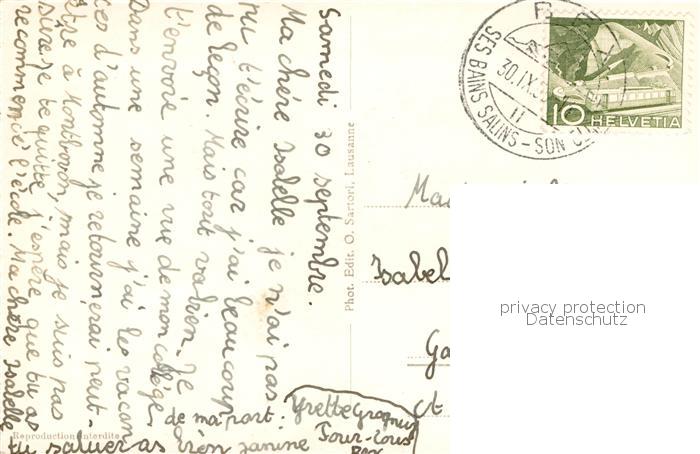 Samedi 30 septembre.
Ma chère Isabelle je n'ai pas
pu t'écrire car j'ai beaucoup
de leçon. Mais tout va bien. Je
t'envoie une vue de mon collège.
Dans une semaine j'ai les vacan
ces d'automne je retournerai peut-
être à Montbovon, mais je suis pas
sure je te quitte j'espère que tu as
recommencé l'école. Ma chère Isabelle
tu salueras bien Janine
de ma part.
Yvette
Tour-Sous
Phot. Edit. O. Sartori, Lausanne
Reproduction interdite
SES BAINS SALINS - SON
30.IX
11
10 HELVETIA
Isabel
Ga
ct
privacy protection
Datenschutz